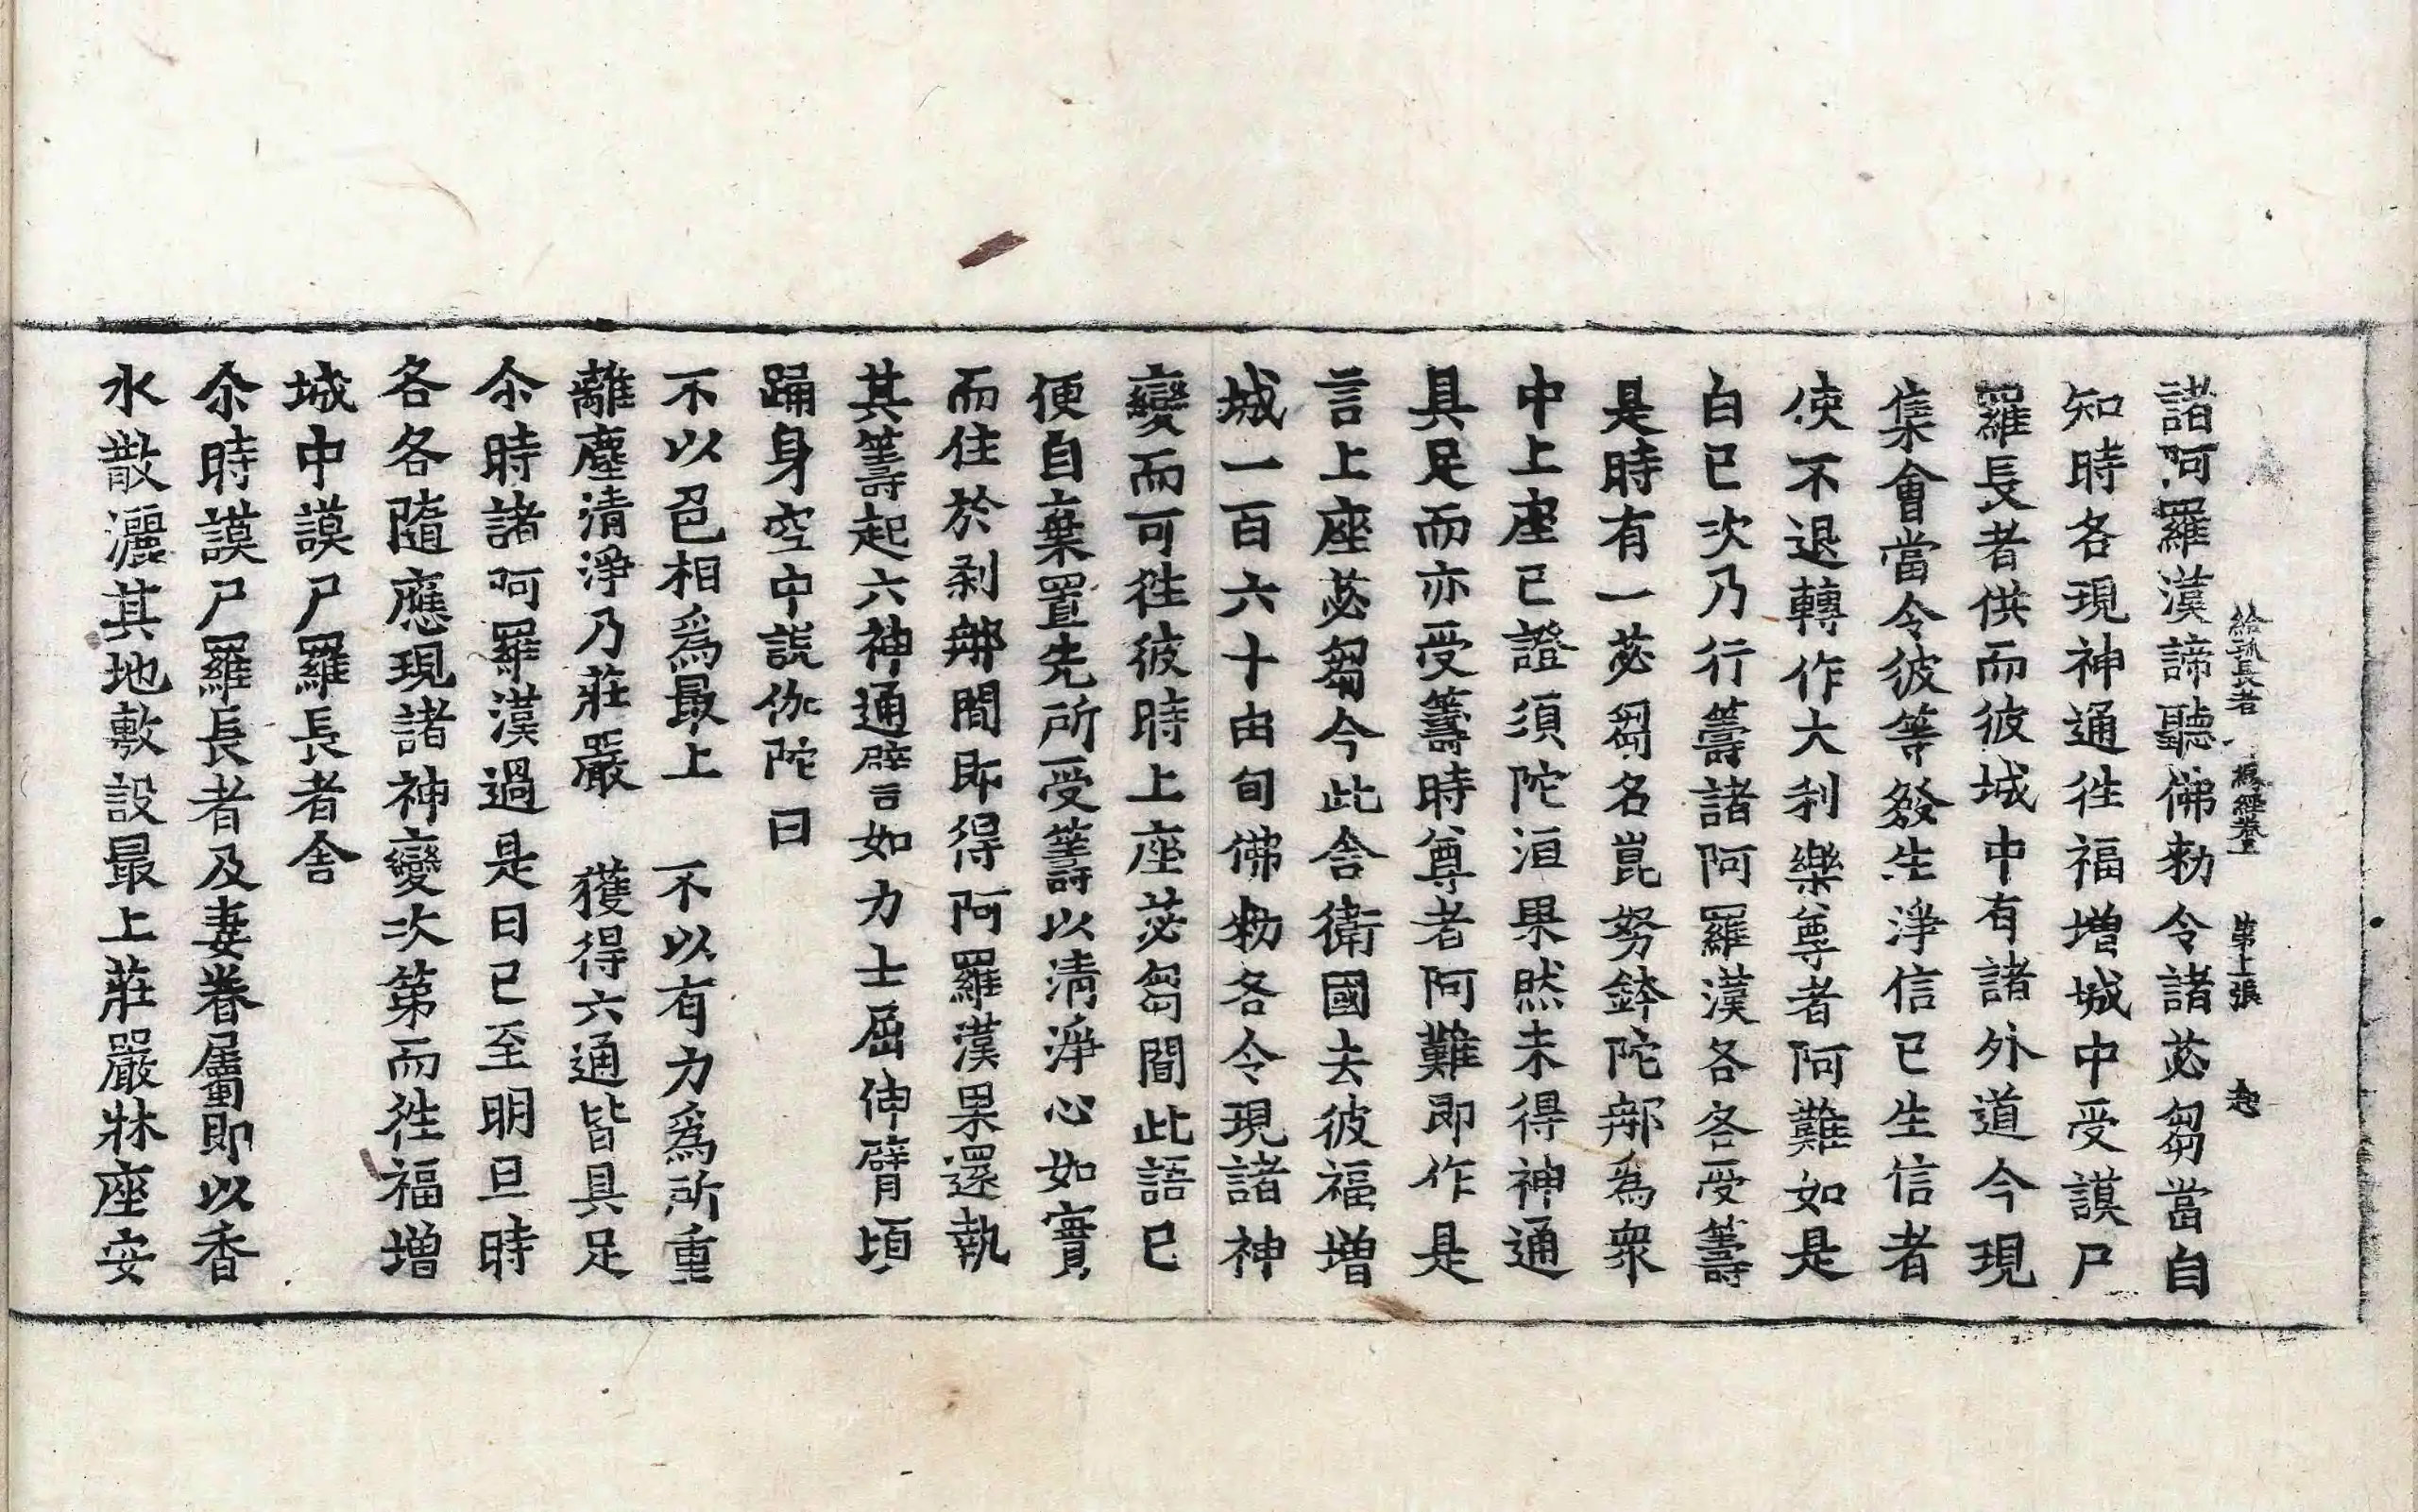 給孤長者 緣經卷 第上張 𡘜
諸阿羅漢諦聽佛勑令諸苾芻當自
知時各現神通徃福增城中受謨尸
羅長者供而彼城中有諸外道今現
集會當令彼等發生淨信已生信者
使不退轉作大利樂尊者阿難如是
白已次乃行籌諸阿羅漢各各受籌
是時有一苾芻名崑努鉢陀那為衆
中上座已證須陀洹果然未得神通
具足而亦受籌時尊者阿難即作是
言上座苾芻今此舍衛國去彼福增
城一百六十由旬佛勑各令現諸神
變而可徃彼時上座苾芻聞此語已
便自棄置先所受籌以清淨心如實
而住於剎那間即得阿羅漢果還執
其籌起六神通譬如力士屈伸臂頃
踊身空中說伽陀曰
不以色相為最上 不以有力為所重
離塵清淨乃莊嚴 獲得六通皆具足
尒時諸阿羅漢過是日已至明旦時
各各隨應現諸神變次第而徃福增
城中謨尸羅長者舍
尒時謨尸羅長者及妻眷屬即以香
水散灑其地敷設最上莊嚴牀座安